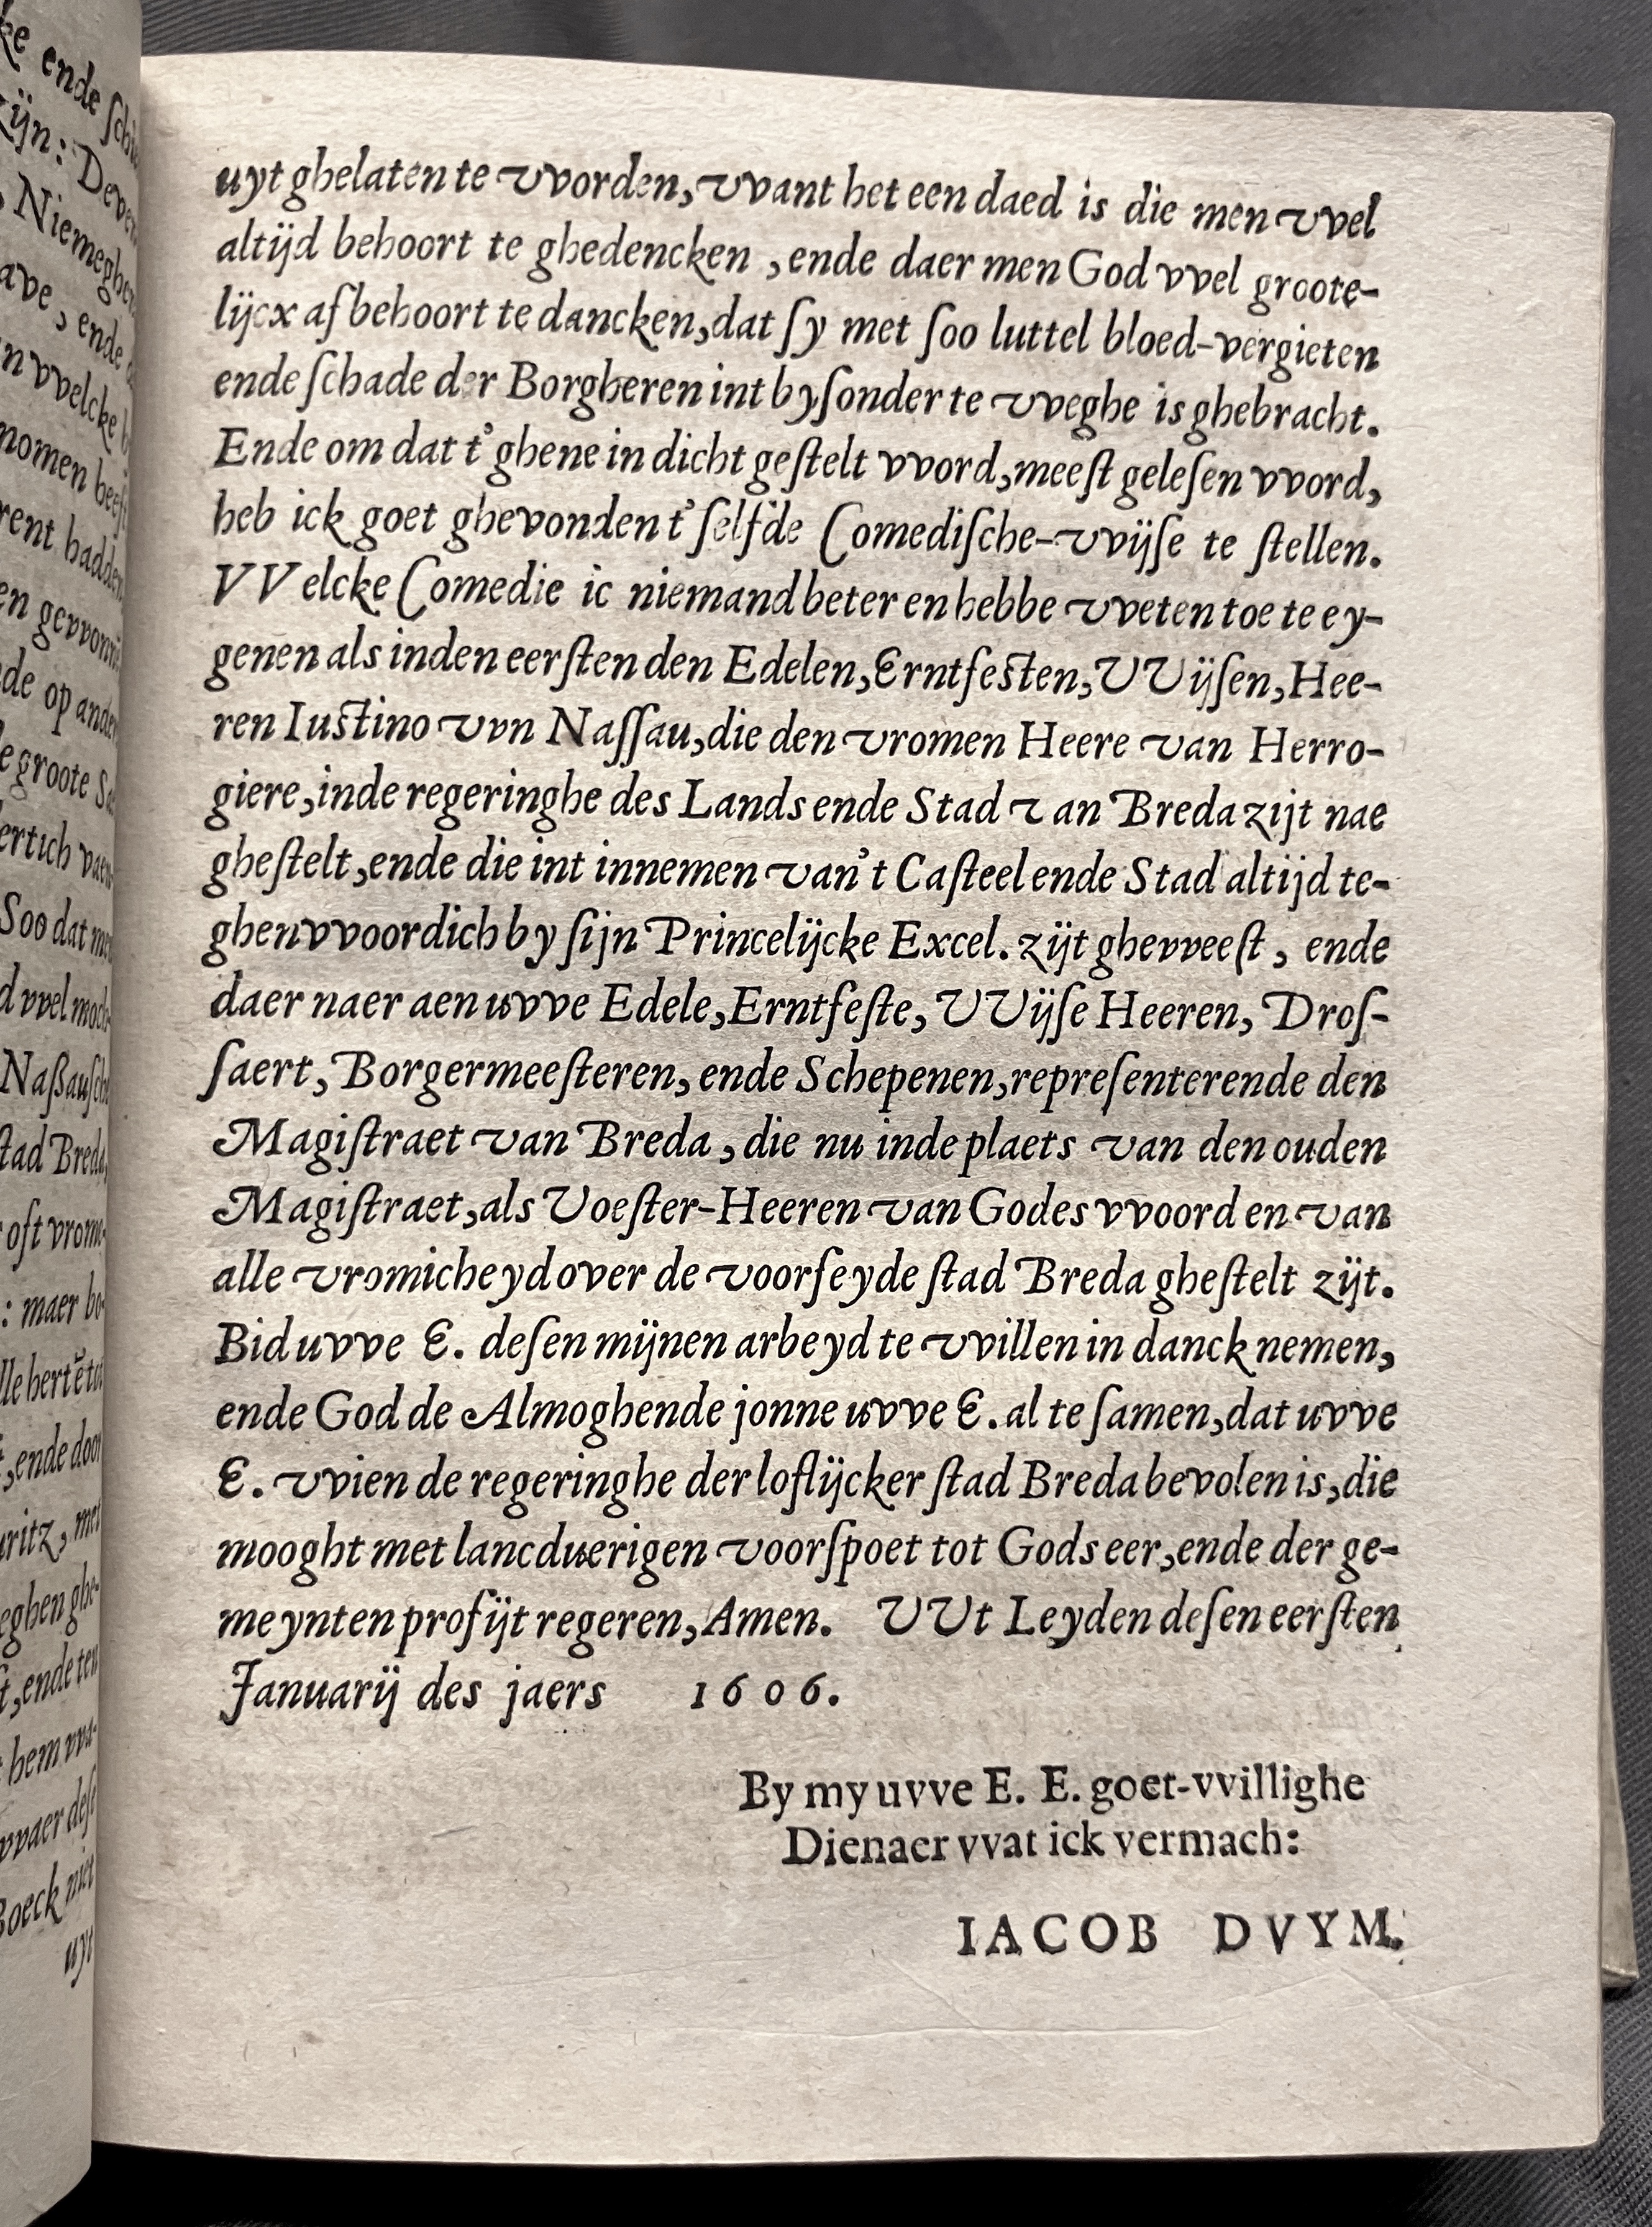 uyt ghelaten te vvorden, vvant het een daed is die men vvel
altijd behoort te ghedencken , ende daer men God vvel groote-
lijcx af behoort te dancken, dat ſy met ſoo luttel bloed-vergieten
ende ſchade der Borgheren int byſonder te vveghe is ghebracht.
Ende om dat t'ghene in dicht geſtelt vvord, meeſt geleſen vvord,
heb ick goet ghevonden t'ſelfde Comediſche-vvijſe te ſtellen.
VVelcke Comedie ic niemand beter en hebbe vveten toe te ey-
genen als inden eerſten den Edelen, Erntfeſten, VVijſen, Hee-
ren Iuſtino vvn Naſſau, die den vromen Heere van Herro-
giere, inde regeringhe des Lands ende Stad van Breda zijt nae
gheſtelt, ende die int innemen van't Caſteel ende Stad altijd te-
ghenvvoordich by ſijn Princelijcke Excel. zijt ghevveeſt , ende
daer naer aen uvve Edele, Erntfeſte, VVijſe Heeren, Droſ-
ſaert, Borgermeeſteren, ende Schepenen, repreſenterende den
Magiſtraet van Breda , die nu inde plaets van den ouden
Magiſtraet, als Voeſter-Heeren van Godes vvoord en van
alle vromicheyd over de voorſeyde ſtad Breda gheſtelt zijt.
Bid uvve E. deſen mijnen arbeyd te vvillen in danck nemen,
ende God de Almoghende jonne uvve E. al te ſamen, dat uvve
E. vvien de regeringhe der loflijcker ſtad Breda bevolen is, die
mooght met lancduerigen voorſpoet tot Gods eer, ende der ge-
meynten profijt regeren, Amen. VVt Leyden deſen eerſten
Januarij des jaers 1606.
By my uvve E. E. goet-vvillighe
Dienaer vvat ick vermach:
IACOB DVYM.